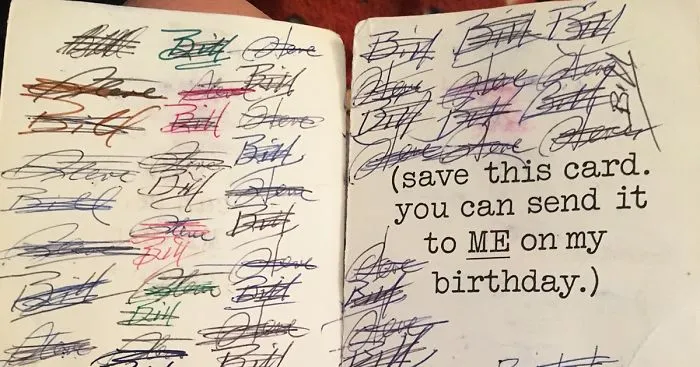 Bill Bill Steve
Steve Steve Bill
Bill Bill Steve
Steve Steve Bill
Bill Bill Steve
Steve Steve Bill
Bill Steve
Bill Steve Bill
Bill Steve
Steve Steve Bill
Bill Bill Bill
Steve Steve Steve
Bill Bill Bill Bill
Steve Steve Steve
(save this card.
you can send it
to ME on my
birthday.)
Steve
Bill
Steve
Bill